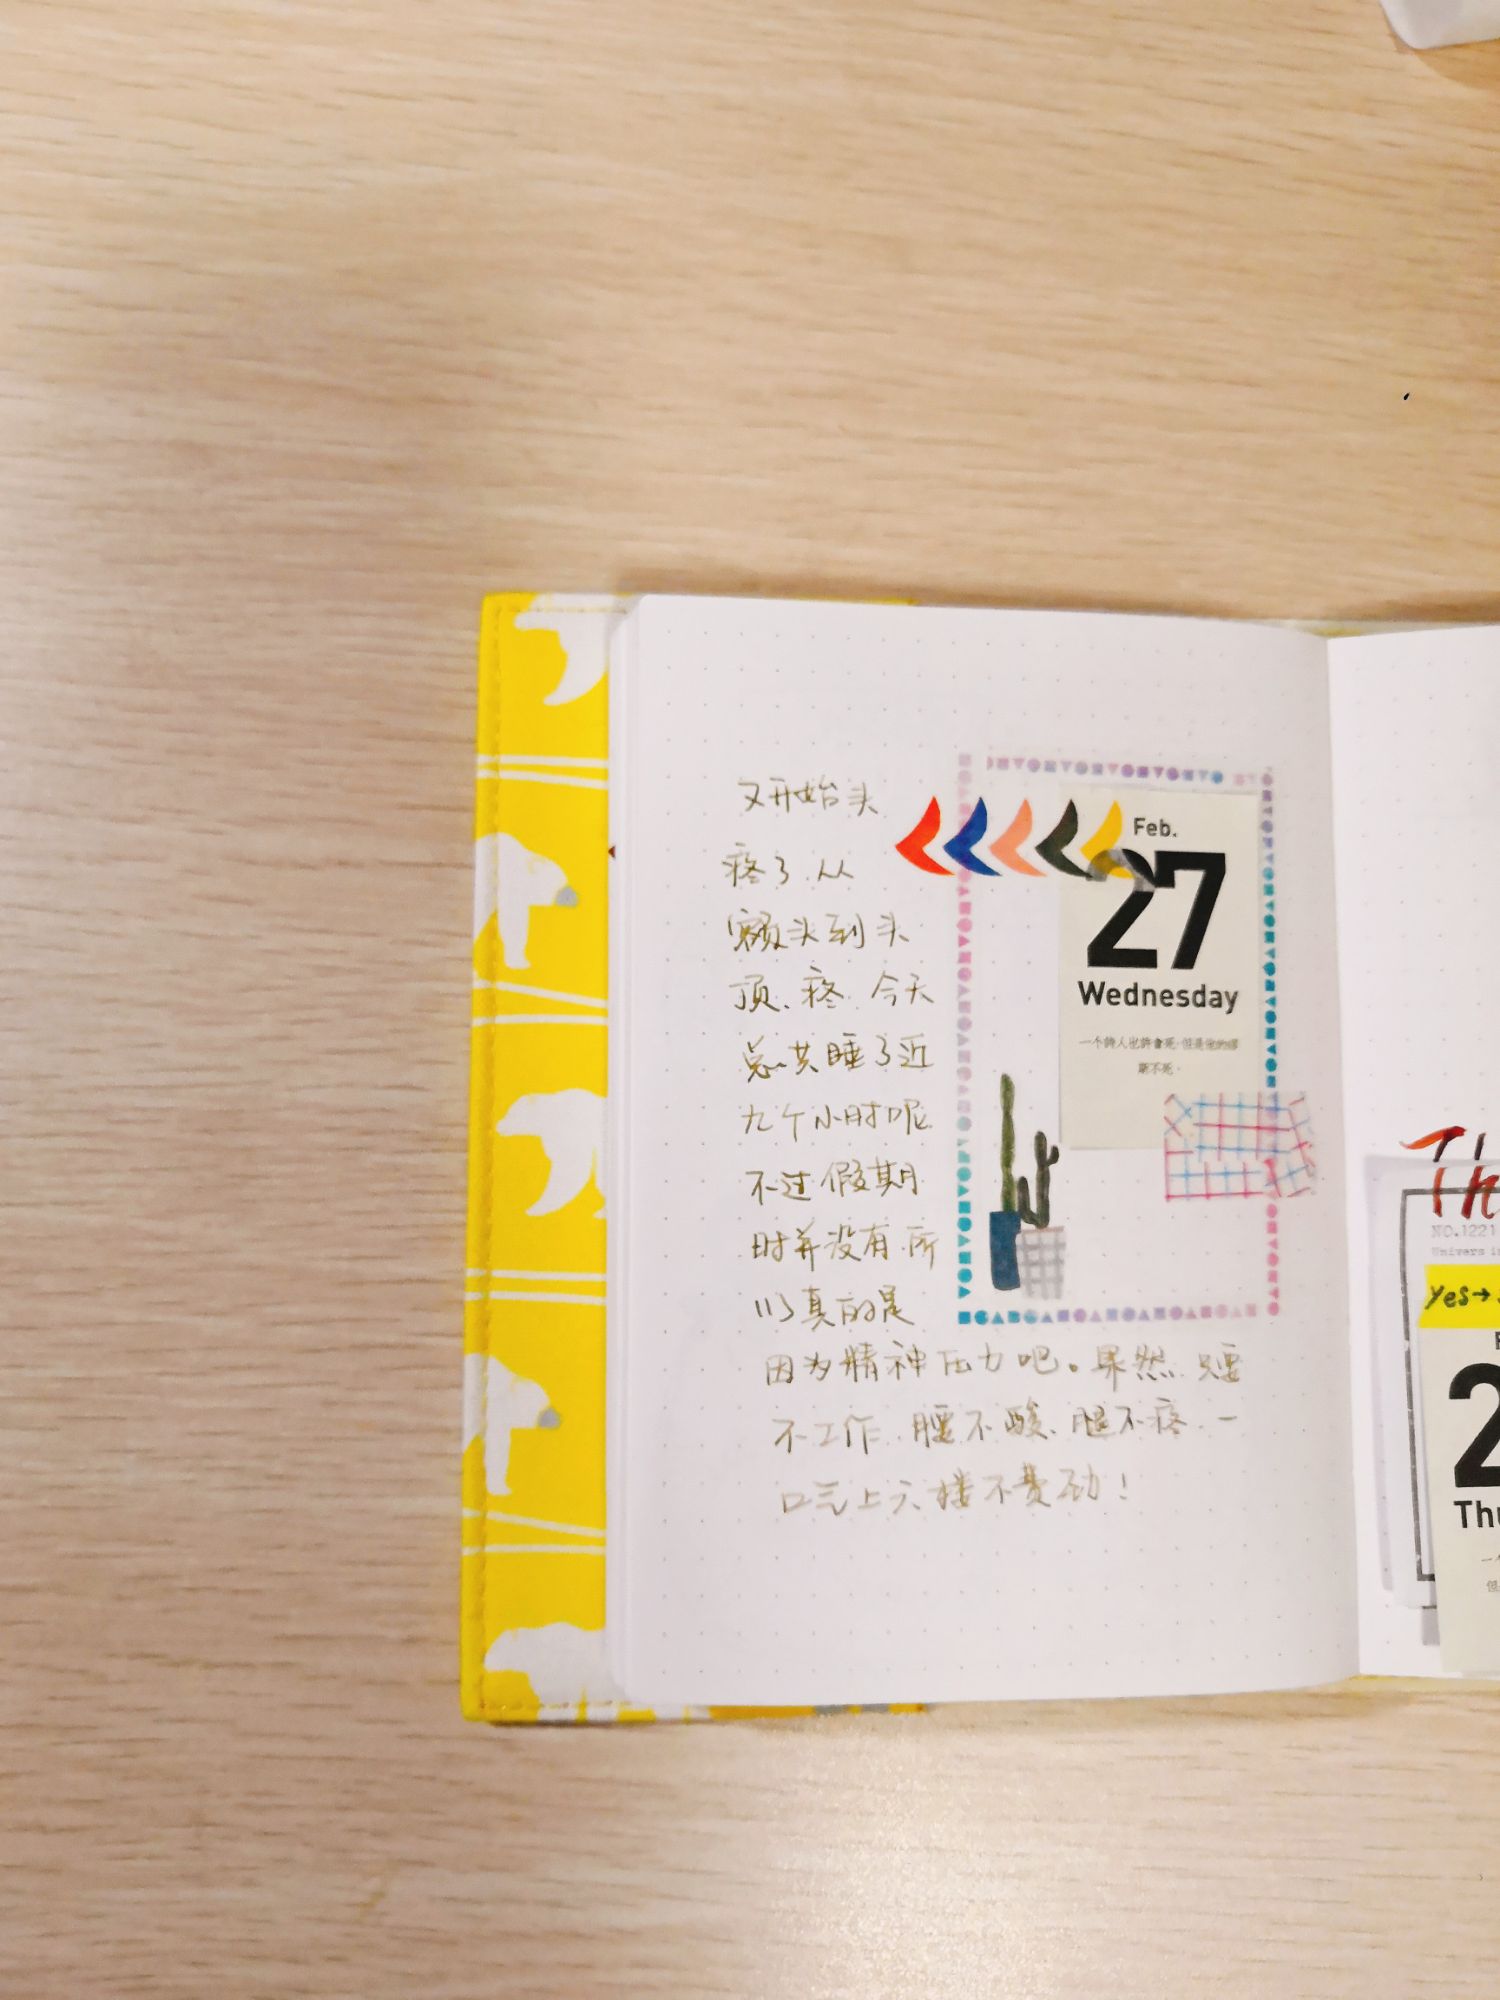 又开始头
疼了.从
额头到头
顶、疼.今天
总共睡了近
九个小时呢.
不过假期
时并没有.所
以真的是
因为精神压力吧。果然.只要
不工作.腰不酸、腿不疼.一
口气上六楼不费劲!
Feb.
27
Wednesday
一个詩人也許會死,但是他的
期不死。
Th
NO.1221
Univers
yes→
2
Thu
一
但